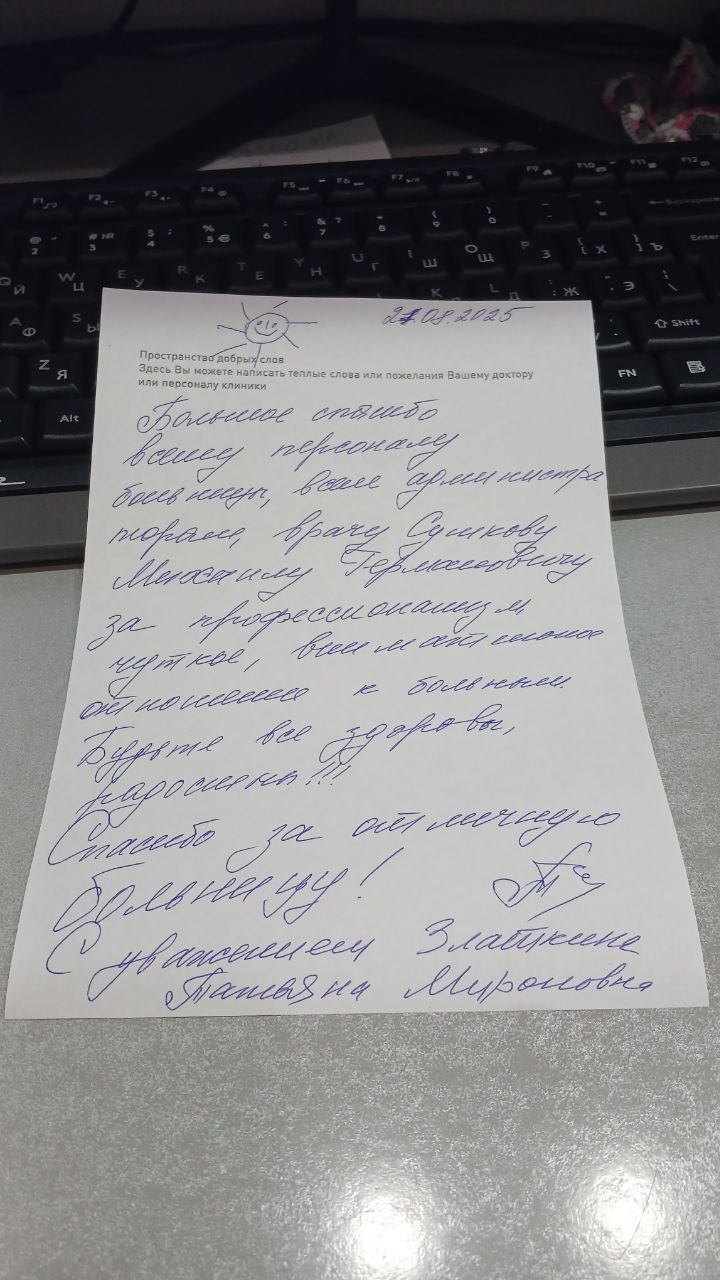 27.08.2025
Пространство добрых слов
Здесь Вы можете написать теплые слова или пожелания Вашему доктору
или персоналу клиники
Большое спасибо
всему персоналу
больницы, всем администра
торам, врачу Сушкову
Михаилу Германовичу
за профессионализм,
чуткое, внимательное
отношение к больным.
Будьте все здоровы,
радостны!!!
Спасибо за отличную
больницу!
С уважением Златкина
Татьяна Мироновна